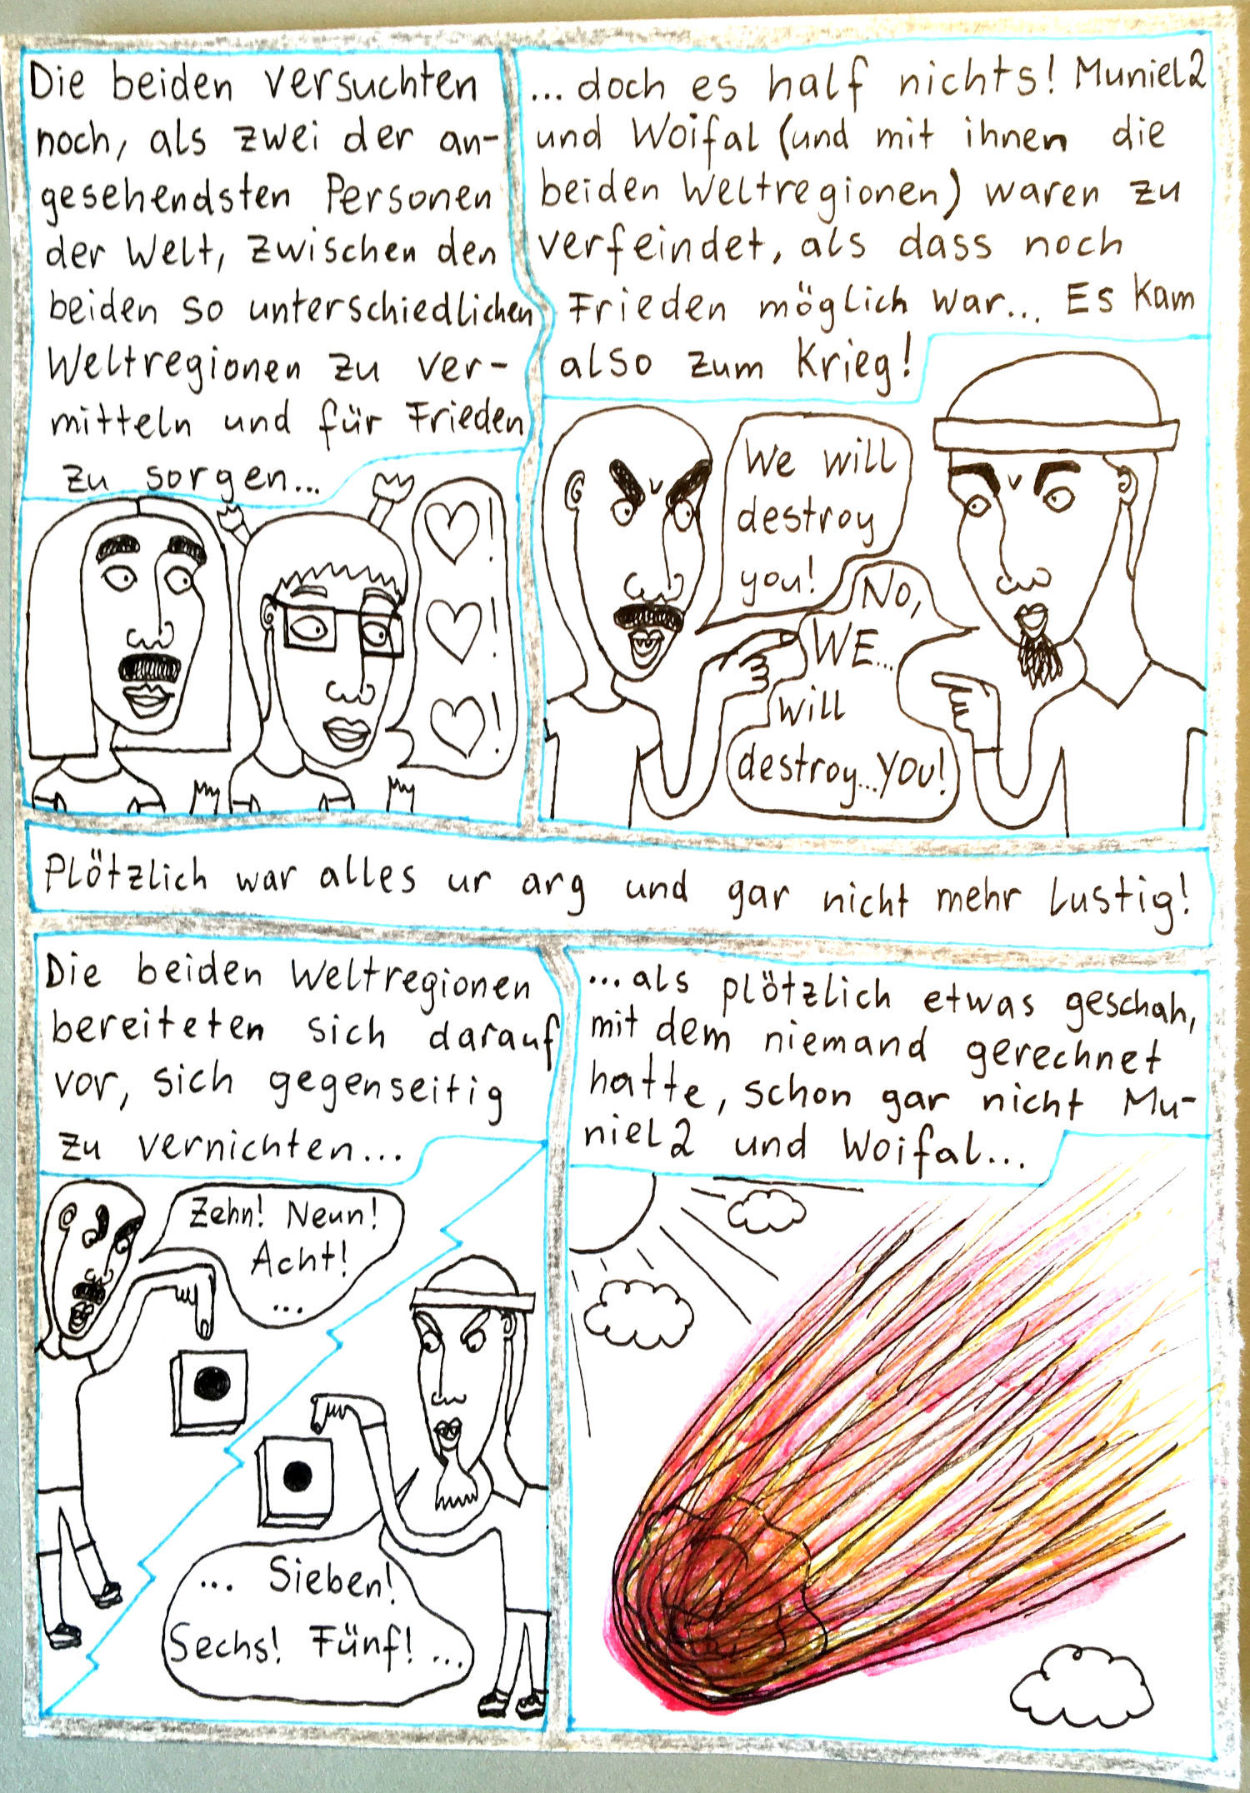 Die beiden versuchten
noch, als zwei der an-
gesehendsten Personen
der Welt, zwischen den
beiden so unterschiedlichen
Weltregionen zu ver-
mitteln und für Frieden
zu sorgen...
!
!
!
... doch es half nichts! Muniel2
und Woifal (und mit ihnen die
beiden Weltregionen) waren zu
verfeindet, als dass noch
Frieden möglich war... Es kam
also zum Krieg!
We will
destroy
you!
No,
WE...
will
destroy...YOU!
Plötzlich war alles ur arg und gar nicht mehr lustig!
Die beiden Weltregionen
bereiteten sich darauf
vor, sich gegenseitig
zu vernichten...
Zehn! Neun!
Acht!
...
... Sieben!
Sechs! Fünf! ...
...als plötzlich etwas geschah,
mit dem niemand gerechnet
hatte, schon gar nicht Mu-
niel2 und Woifal...